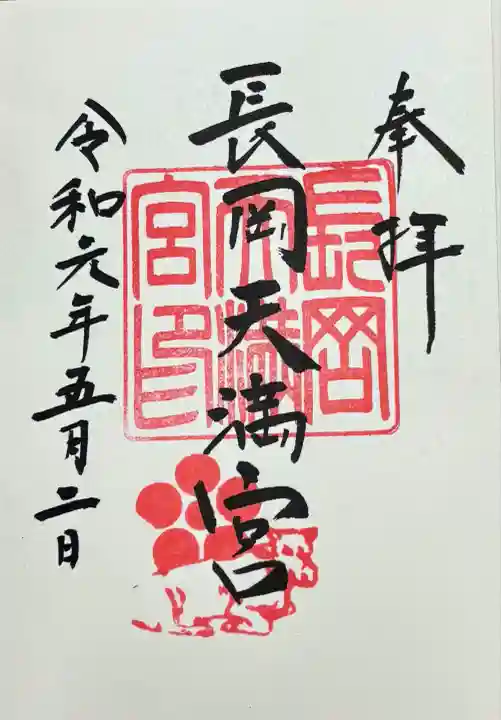 奉拝
長岡天満宮
長岡天満宮印
令和元年五月二日